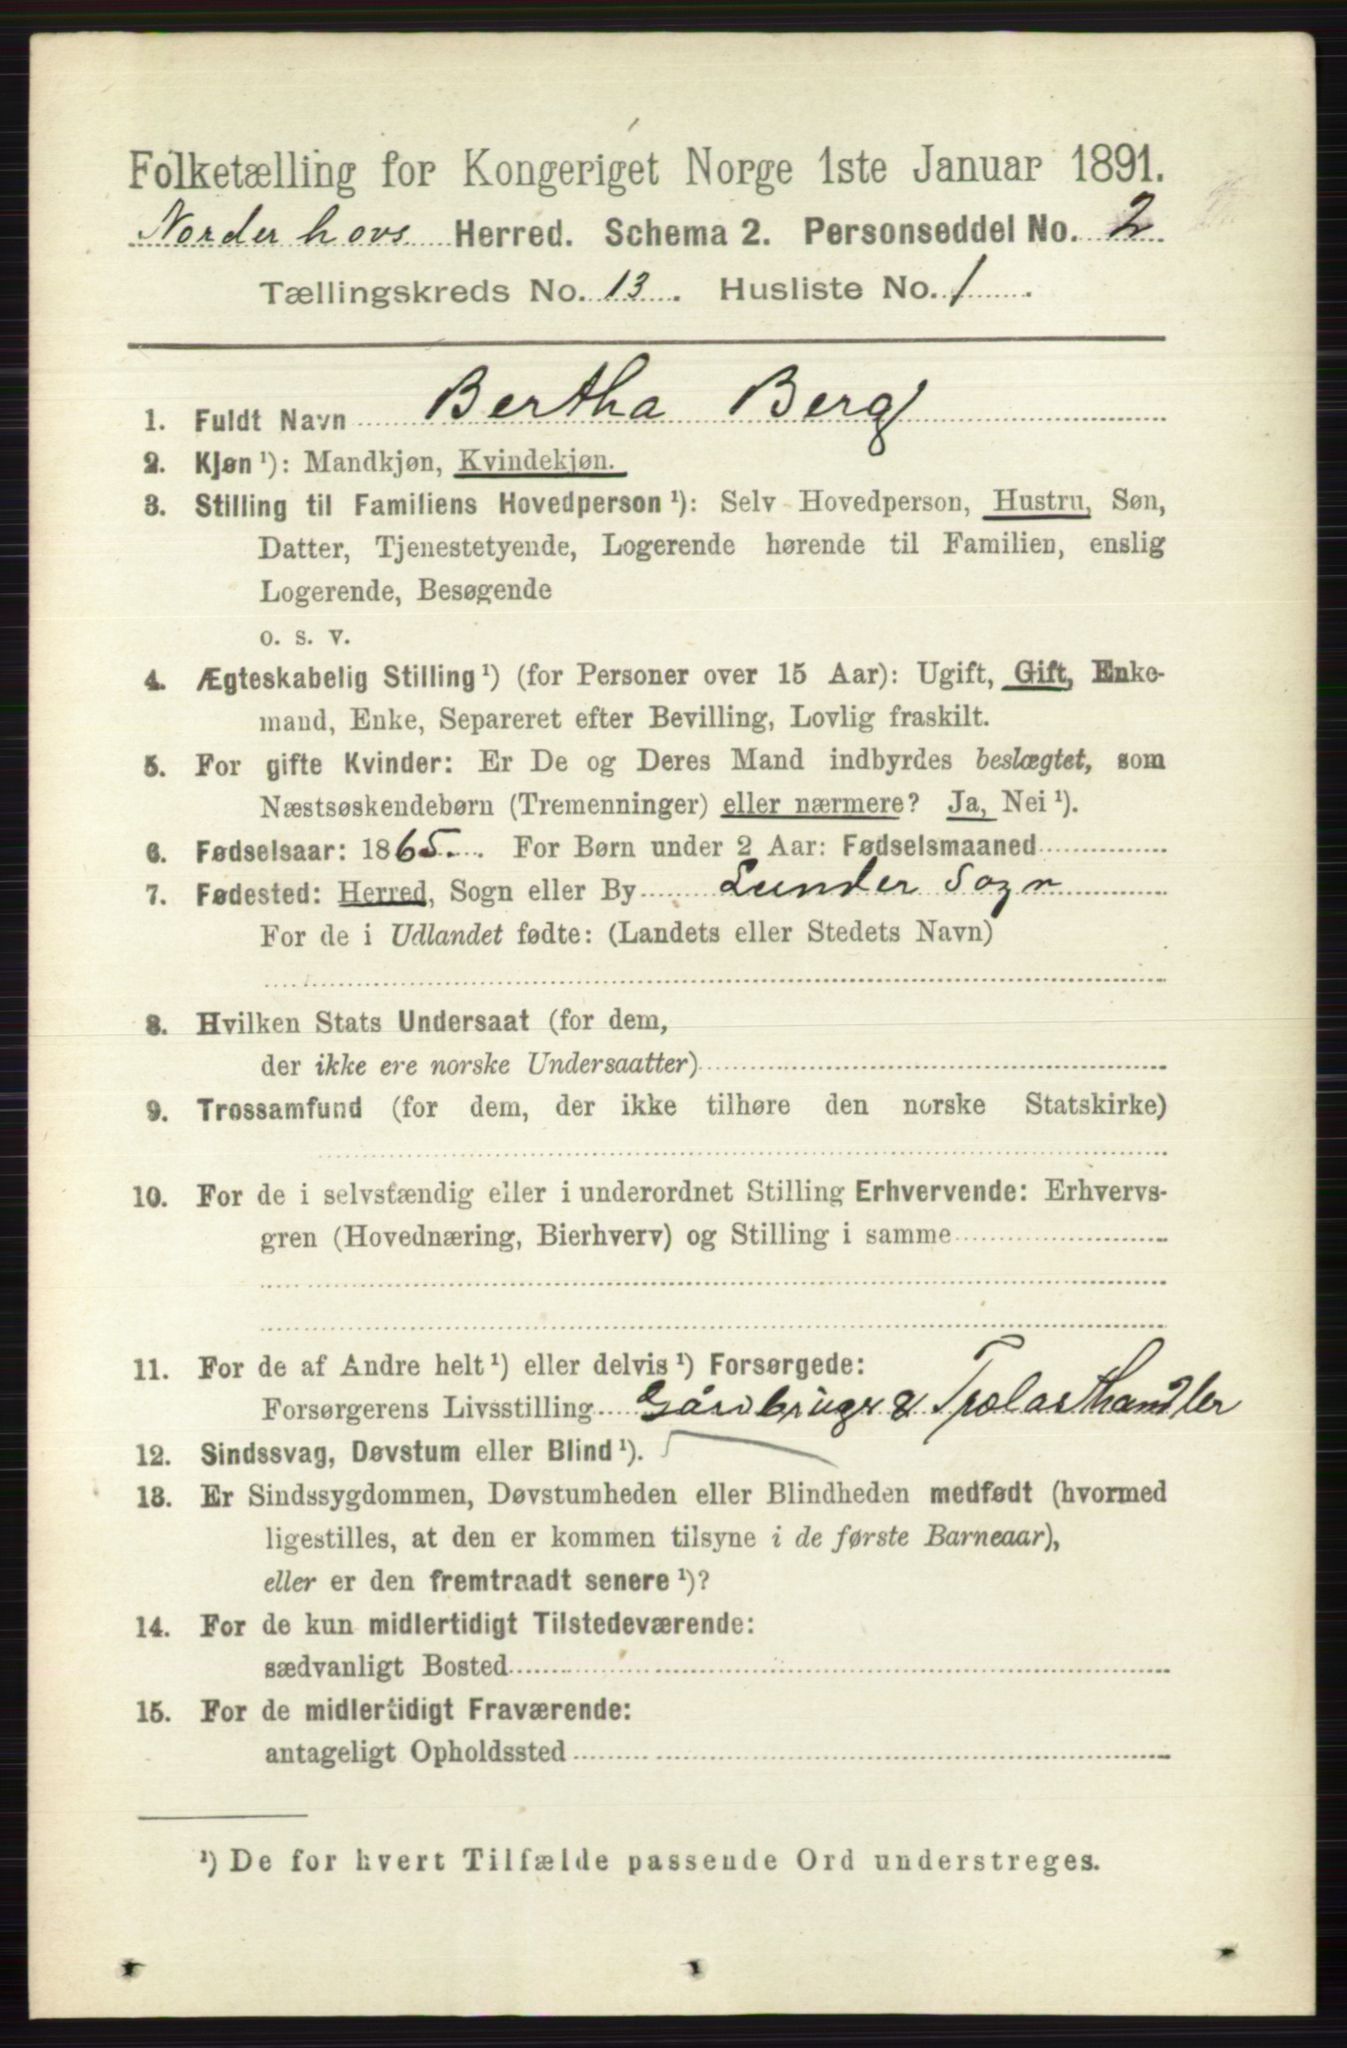 Folketælling for Kongeriget Norge 1ste Januar 1891.
Norderhovs Herred. Schema 2. Personseddel No. 2
Tællingskreds No. 13. Husliste No. 1
1. Fuldt Navn Bertha Berg
2. Kjøn¹): Mandkjøn, Kvindekjøn.
3. Stilling til Familiens Hovedperson¹): Selv Hovedperson, Hustru, Søn,
Datter, Tjenestetyende, Logerende hørende til Familien, enslig
Logerende, Besøgende
o. s. v.
4. Ægteskabelig Stilling¹) (for Personer over 15 Aar): Ugift, Gift, Enke-
mand, Enke, Separeret efter Bevilling, Lovlig fraskilt.
5. For gifte Kvinder: Er De og Deres Mand indbyrdes beslægtet, som
Næstsøskendebørn (Tremenninger) eller nærmere? Ja, Nei¹).
6. Fødselsaar: 1865. For Børn under 2 Aar: Fødselsmaaned
7. Fødested: Herred, Sogn eller By Lunder Sogn
For de i Udlandet fødte: (Landets eller Stedets Navn)
8. Hvilken Stats Undersaat (for dem,
der ikke ere norske Undersaatter)
9. Trossamfund (for dem, der ikke tilhøre den norske Statskirke)
10. For de i selvstændig eller i underordnet Stilling Erhvervende: Erhvervs-
gren (Hovednæring, Bierhverv) og Stilling i samme
11. For de af Andre helt¹) eller delvis¹) Forsørgede:
Forsørgerens Livsstilling Gårdbruger & Trælasthandler
12. Sindssvag, Døvstum eller Blind¹).
13. Er Sindssygdommen, Døvstumheden eller Blindheden medfødt (hvormed
ligestilles, at den er kommen tilsyne i de første Barneaar),
eller er den fremtraadt senere¹)?
14. For de kun midlertidigt Tilstedeværende:
sædvanligt Bosted
15. For de midlertidigt Fraværende:
antageligt Opholdssted
¹) De for hvert Tilfælde passende Ord understreges.